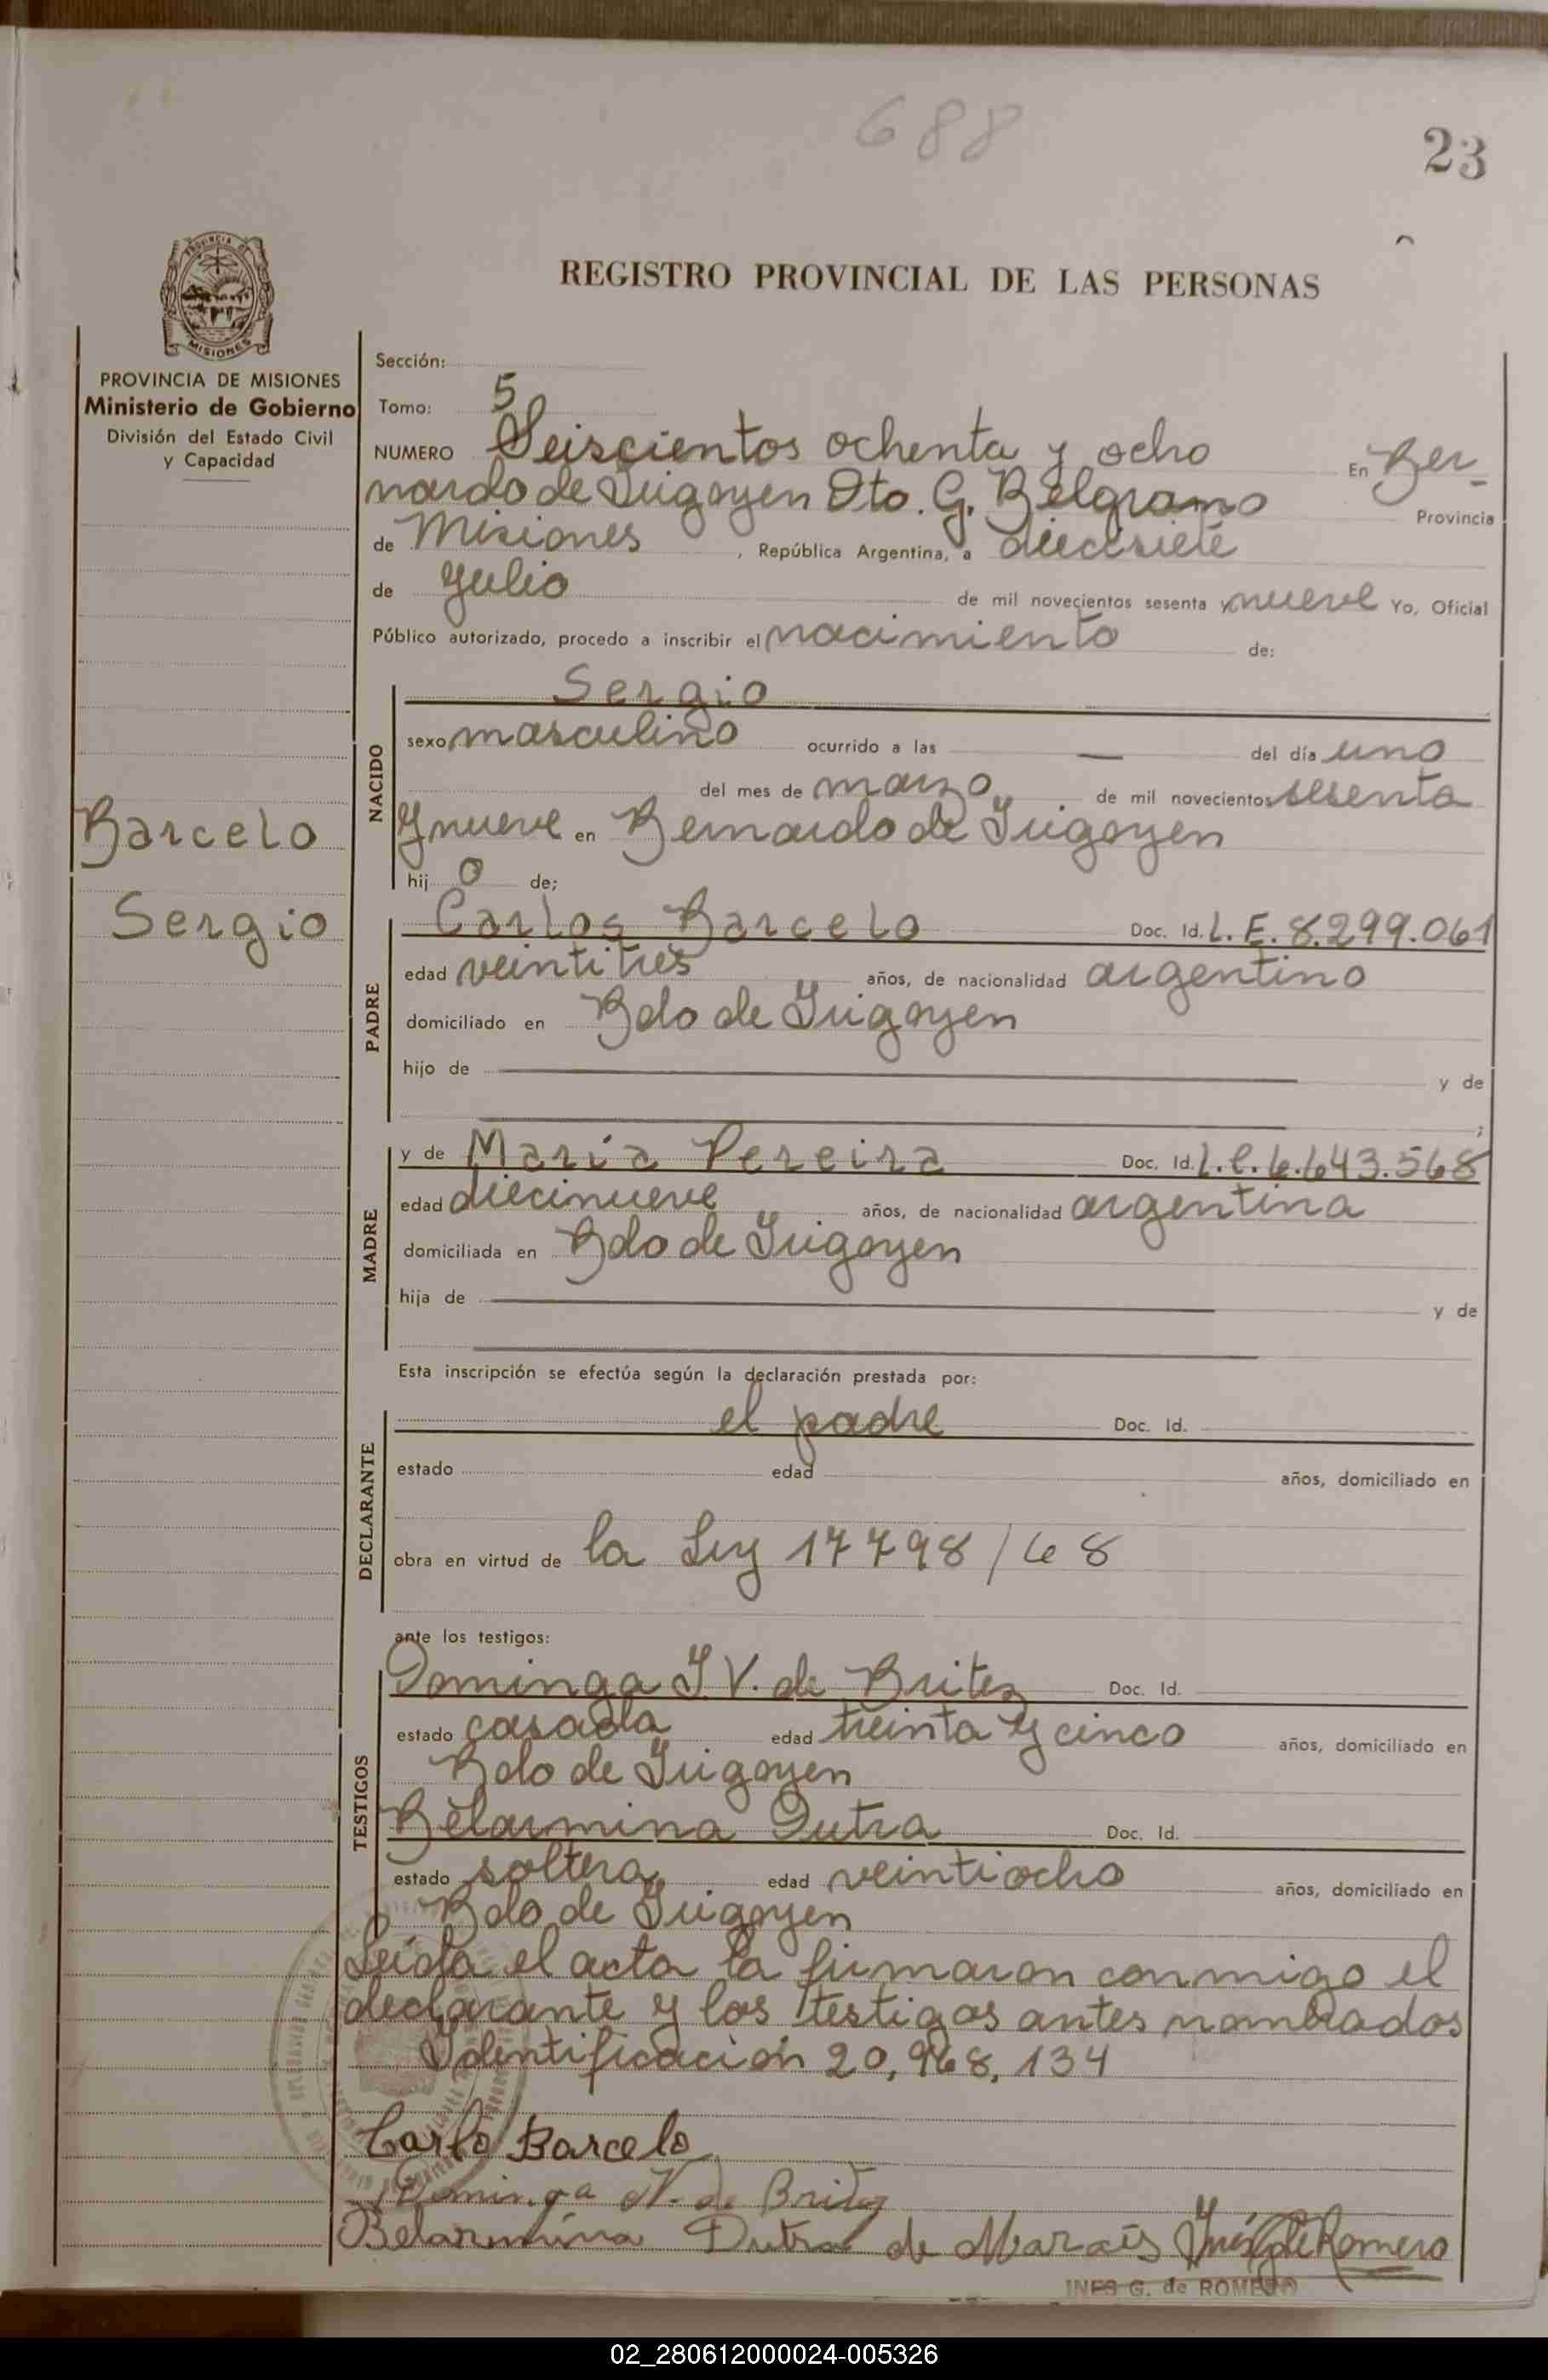 688
23
REGISTRO PROVINCIAL DE LAS PERSONAS
MISIONES
PROVINCIA DE MISIONES
Ministerio de Gobierno
División del Estado Civil
y Capacidad
Barcelo
Sergio
Sección:
Tomo: 5
NUMERO Seiscientos ochenta y ocho En Ber-
nardo de Irigoyen Dto. G. Belgrano Provincia
de Misiones, República Argentina, a diecisiete
de Julio de mil novecientos sesenta y nueve Yo, Oficial
Público autorizado, procedo a inscribir el nacimiento de:
NACIDO
Sergio
sexo masculino ocurrido a las — del día uno
del mes de marzo de mil novecientos sesenta
y nueve en Bernardo de Irigoyen
hijo de;
PADRE
Carlos Barcelo Doc. Id. L.E. 8.299.061
edad veintitres años, de nacionalidad argentino
domiciliado en Bdo de Irigoyen
hijo de y de
;
MADRE
y de María Pereira Doc. Id. L.C. 6.643.568
edad diecinueve años, de nacionalidad argentina
domiciliada en Bdo de Irigoyen
hija de y de
Esta inscripción se efectúa según la declaración prestada por:
DECLARANTE
el padre Doc. Id.
estado edad años, domiciliado en
obra en virtud de la Ley 17798/68
ante los testigos:
TESTIGOS
Dominga I. V. de Britez Doc. Id.
estado casada edad treinta y cinco años, domiciliado en
Bdo de Irigoyen
Belarmina Dutra Doc. Id.
estado soltera edad veintiocho años, domiciliado en
Bdo de Irigoyen
Leida el acta la firmaron conmigo el
declarante y los testigos antes nombrados
Identificación 20,968,134
Carlo Barcelo
Dominga V. de Britez
Belarmina Dutra de Marais Inés G de Romero
INES G. de ROMERO
02_280612000024-005326